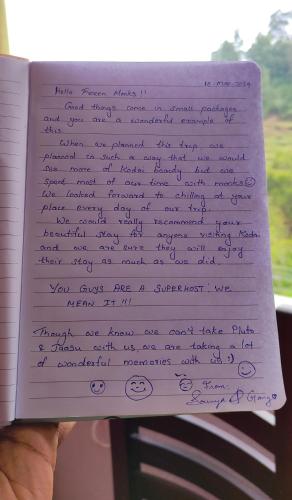 12-Mar-2024
Hello Frozen Monks!!
Good things come in small packages
and you are a wonderful example of
this.
When we planned this trip we
planned in such a way that we would
see more of Kodai beauty but we
spent most of our time with monks
We looked forward to chilling at your
place every day of our trip.
We would really recommend your
beautiful stay for anyone visiting Kodai
and we are sure they will enjoy
their stay as much as we did.
YOU GUYS ARE A SUPERHOST! WE
MEAN IT!!!
Though we know we can't take Pluto
& Jaasu with us, we are taking a lot
of wonderful memories with us :)
From:
& Gang